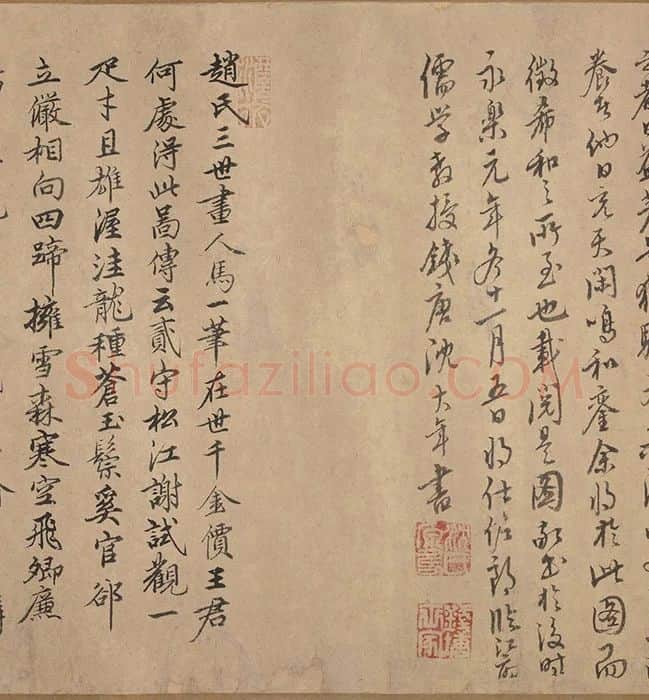 養於他日充天閑鳴和鑾余將於此圖而
徵希和之所至也載閱是圖敬書於後時
永樂元年冬十一月五日將仕佐郎臨江府
儒学教授錢唐沈大年書
趙氏三世畫人馬一筆在世千金價王君
何處得此圖傳云貳守松江謝試觀一
疋才且雄渥洼龍種蒼玉鬃奚官卻
立儼相向四蹄擁雪森寒空飛卿廉
Shufaziliao.COM